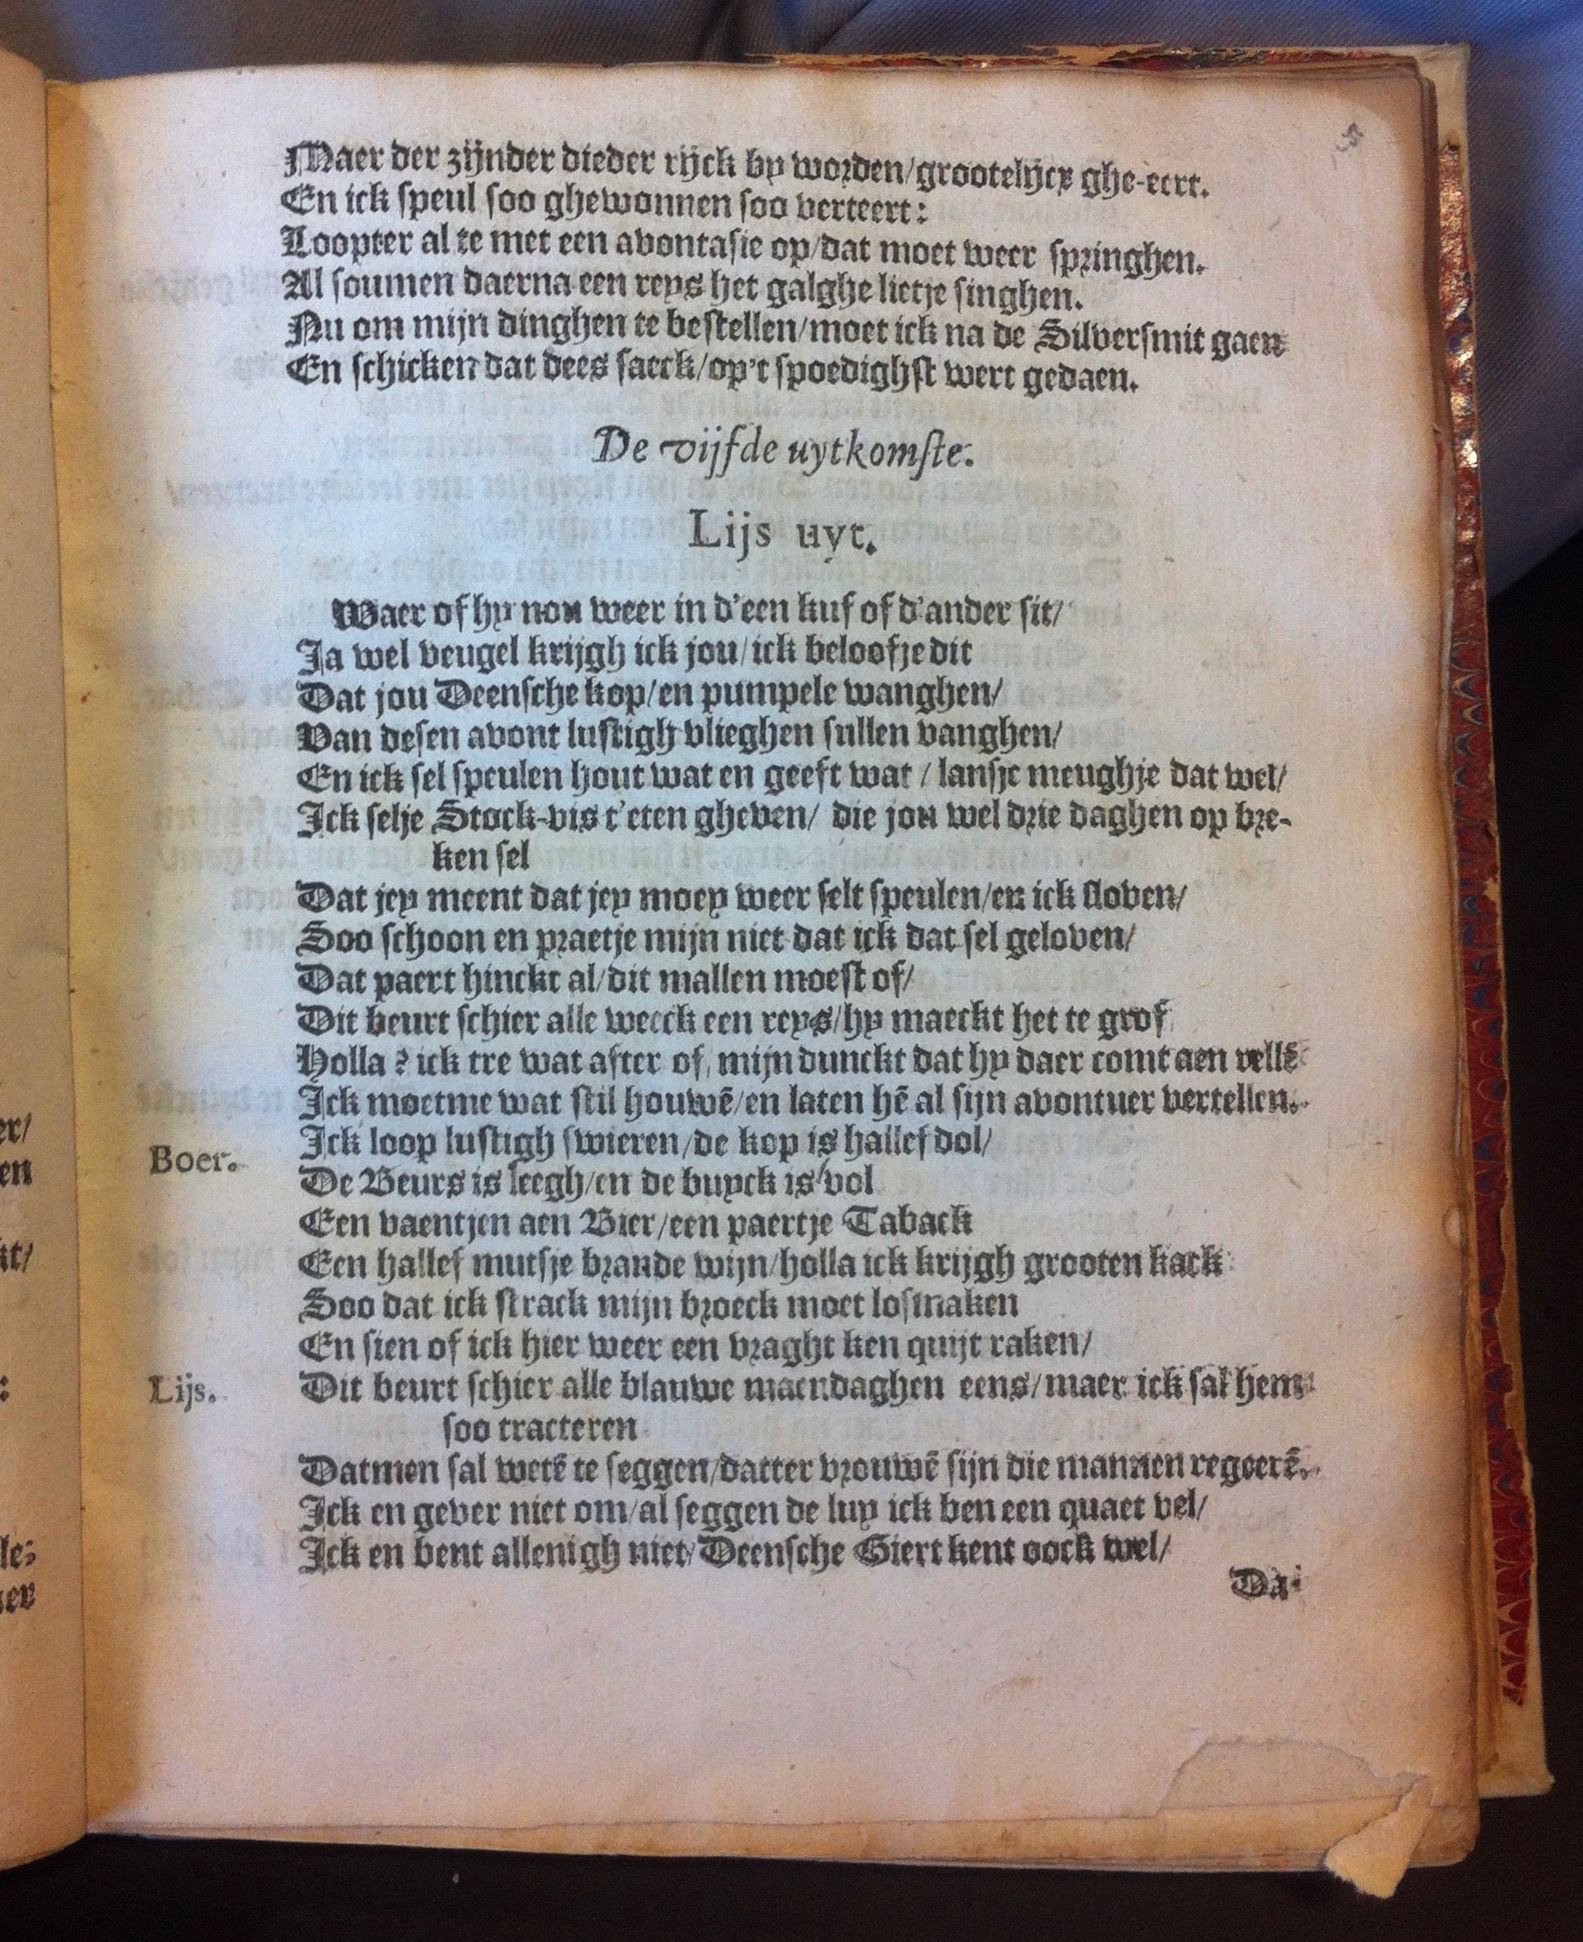 Maer der zijnder dieder rijck by worden/grootelijcx ghe-eert.
En ick speul soo ghewonnen soo verteert:
Loopter al te met een avontasie op/dat moet weer springhen.
Al soumen daerna een reys het galghe lietje singhen.
Nu om mijn dinghen te bestellen/moet ick na de Silversmit gaen
En schicken dat dees saeck/op't spoedighst wert gedaen.
De vijfde uytkomste.
Lijs uyt.
Waer of hy nou weer in d'een kuf of d'ander sit/
Ja wel veugel krijgh ick jou/ick beloofje dit
Dat jou Deensche kop/en pumpele wanghen/
Van desen avont lustigh vlieghen sullen vanghen/
En ick sel speulen hout wat en geeft wat / lansje meughje dat wel/
Ick selje Stock-vis t'eten gheven/ die jou wel drie daghen op bre-
ken sel
Dat jey meent dat jey moey weer selt speulen/en ick sloven/
Soo schoon en praetje mijn niet dat ick dat sel geloven/
Dat paert hinckt al/dit mallen moest of/
Dit beurt schier alle weeck een reys/hy maeckt het te grof
Holla? ick tre wat after of, mijn dunckt dat hy daer comt aen vellẽ
Ick moetme wat stil houwẽ/en laten hẽ al sijn avontuer vertellen.
Boer. Ick loop lustigh swieren/de kop is hallef dol/
De Beurs is leegh/en de buyck is vol
Een vaentjen aen Bier/een paertje Taback
Een hallef mutsje brande wijn/holla ick krijgh grooten kack
Soo dat ick strack mijn broeck moet losmaken
En sien of ick hier weer een vraght ken quijt raken/
Lijs. Dit beurt schier alle blauwe maendaghen eens/maer ick sal hem
soo tracteren
Datmen sal wetẽ te seggen/datter vrouwẽ sijn die mannen regeerẽ.
Ick en gever niet om/al seggen de luy ick ben een quaet vel/
Ick en bent allenigh niet/Deensche Giert kent oock wel/
Da